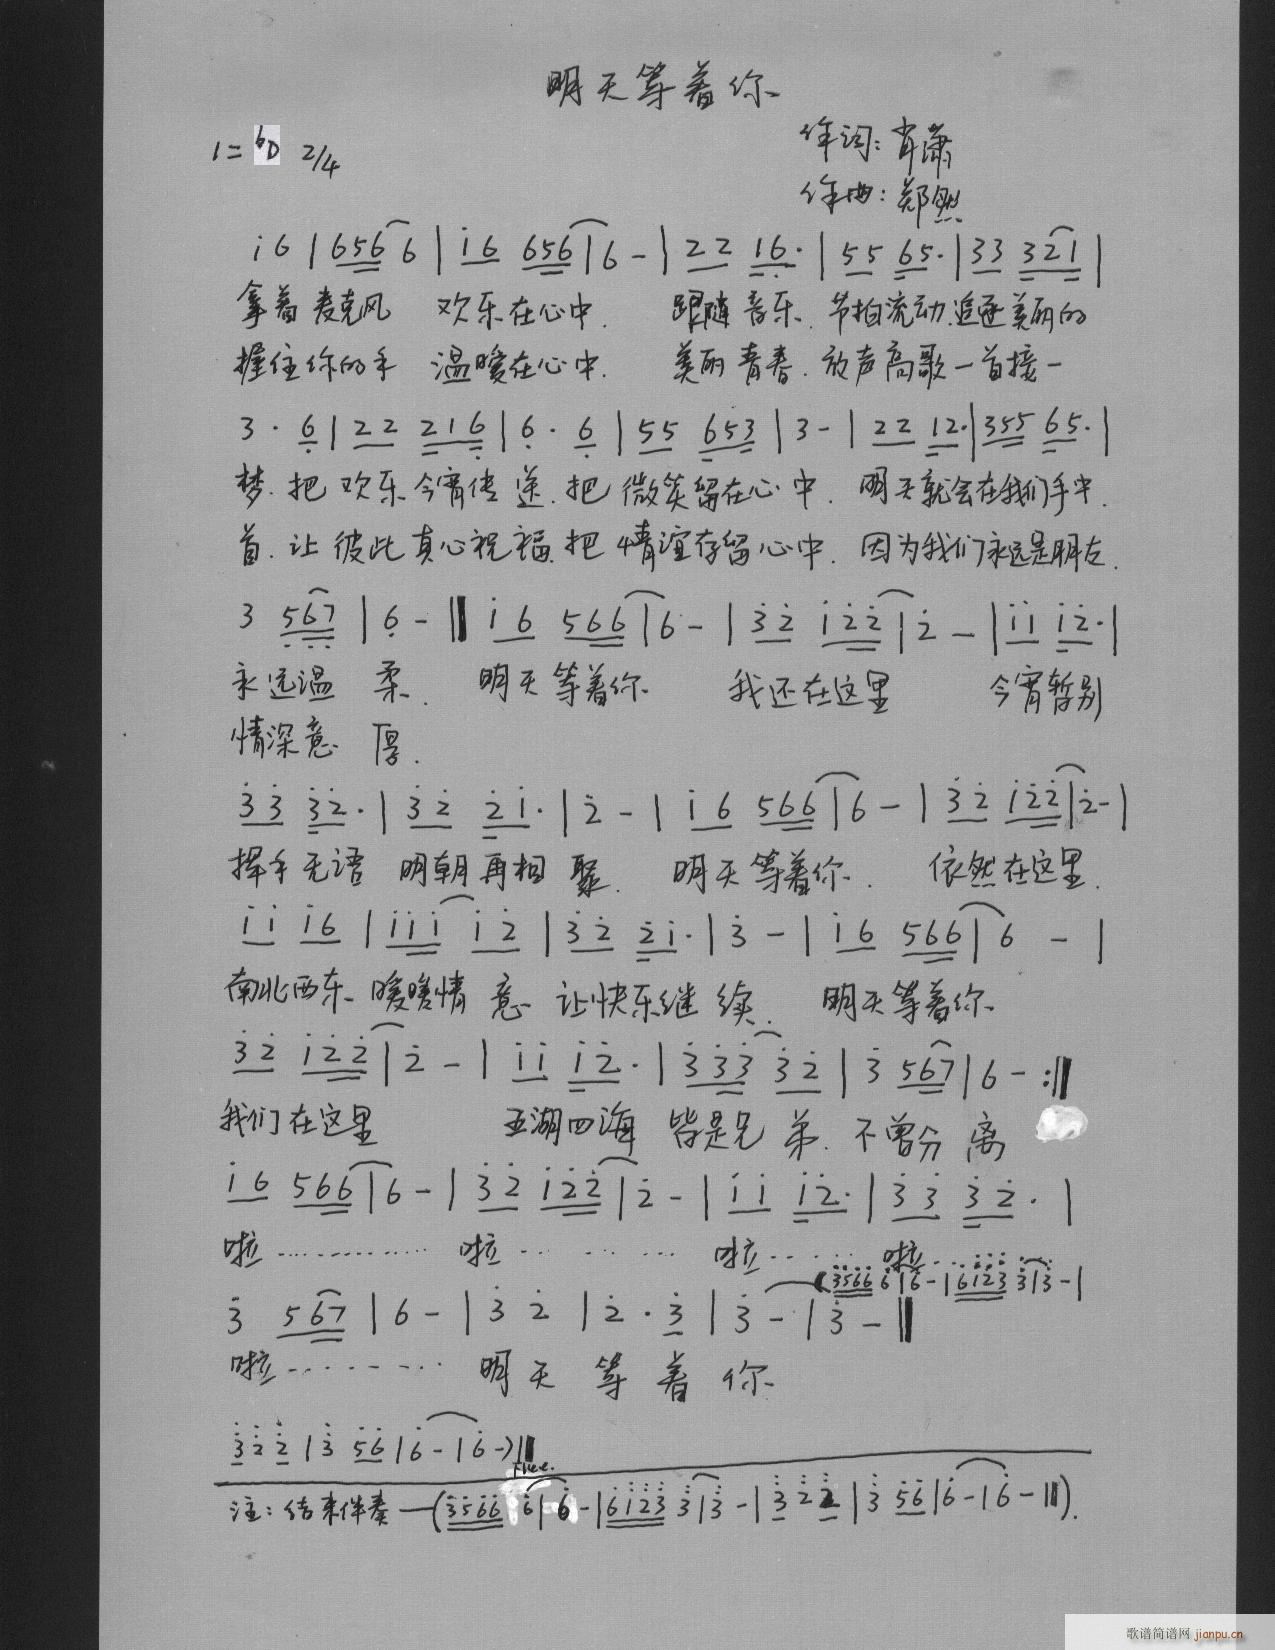 明天等着你
作词：肖潇
1=♭D 2/4
作曲：郑然
i6|6566|i6 656|6-|22 16·|55 65·|33 321|
拿着麦克风 欢乐在心中. 跟随音乐.节拍流动.追逐美丽的
握住你的手 温暖在心中. 美丽青春.放声高歌一首接一
3·6|22 216|6·6|55 653|3-|22 12·|355 65·|
梦.把欢乐今宵传送.把微笑留在心中.明天就会在我们手中.
首.让彼此真心祝福.把情谊存留心中.因为我们永远是朋友.
3 567|6-‖i6 566|6-|32 122|2-|ii i2·|
永远温柔. 明天等着你 我还在这里 今宵暂别
情深意厚.
33 32·|32 2i·|2-|i6 566|6-|32 i22|2-|
挥手无语 明朝再相聚. 明天等着你. 依然在这里.
ii i6|iii i2|32 2i·|3-|i6 566|6-|
南北西东 暖暖情意 让快乐继续. 明天等着你
32 i22|2-|ii i2·|333 32|3 567|6-:‖
我们在这里 五湖四海 皆是兄弟.不曾分离
i6 566|6-|32 i22|2-|ii i2·|33 32·|
啦…………… 啦…………… 啦…………… 啦……
(3566 6|6-|6123 3|3-|
3 567|6-|32|2·3|3-|3-‖
啦………… 明天等着你
322|3 56|6-|6-)‖
注：结束伴奏—(3566 6|6-|6i23 3|3-|322|3 56|6-|6-‖).
歌谱简谱网 jianpu.cn